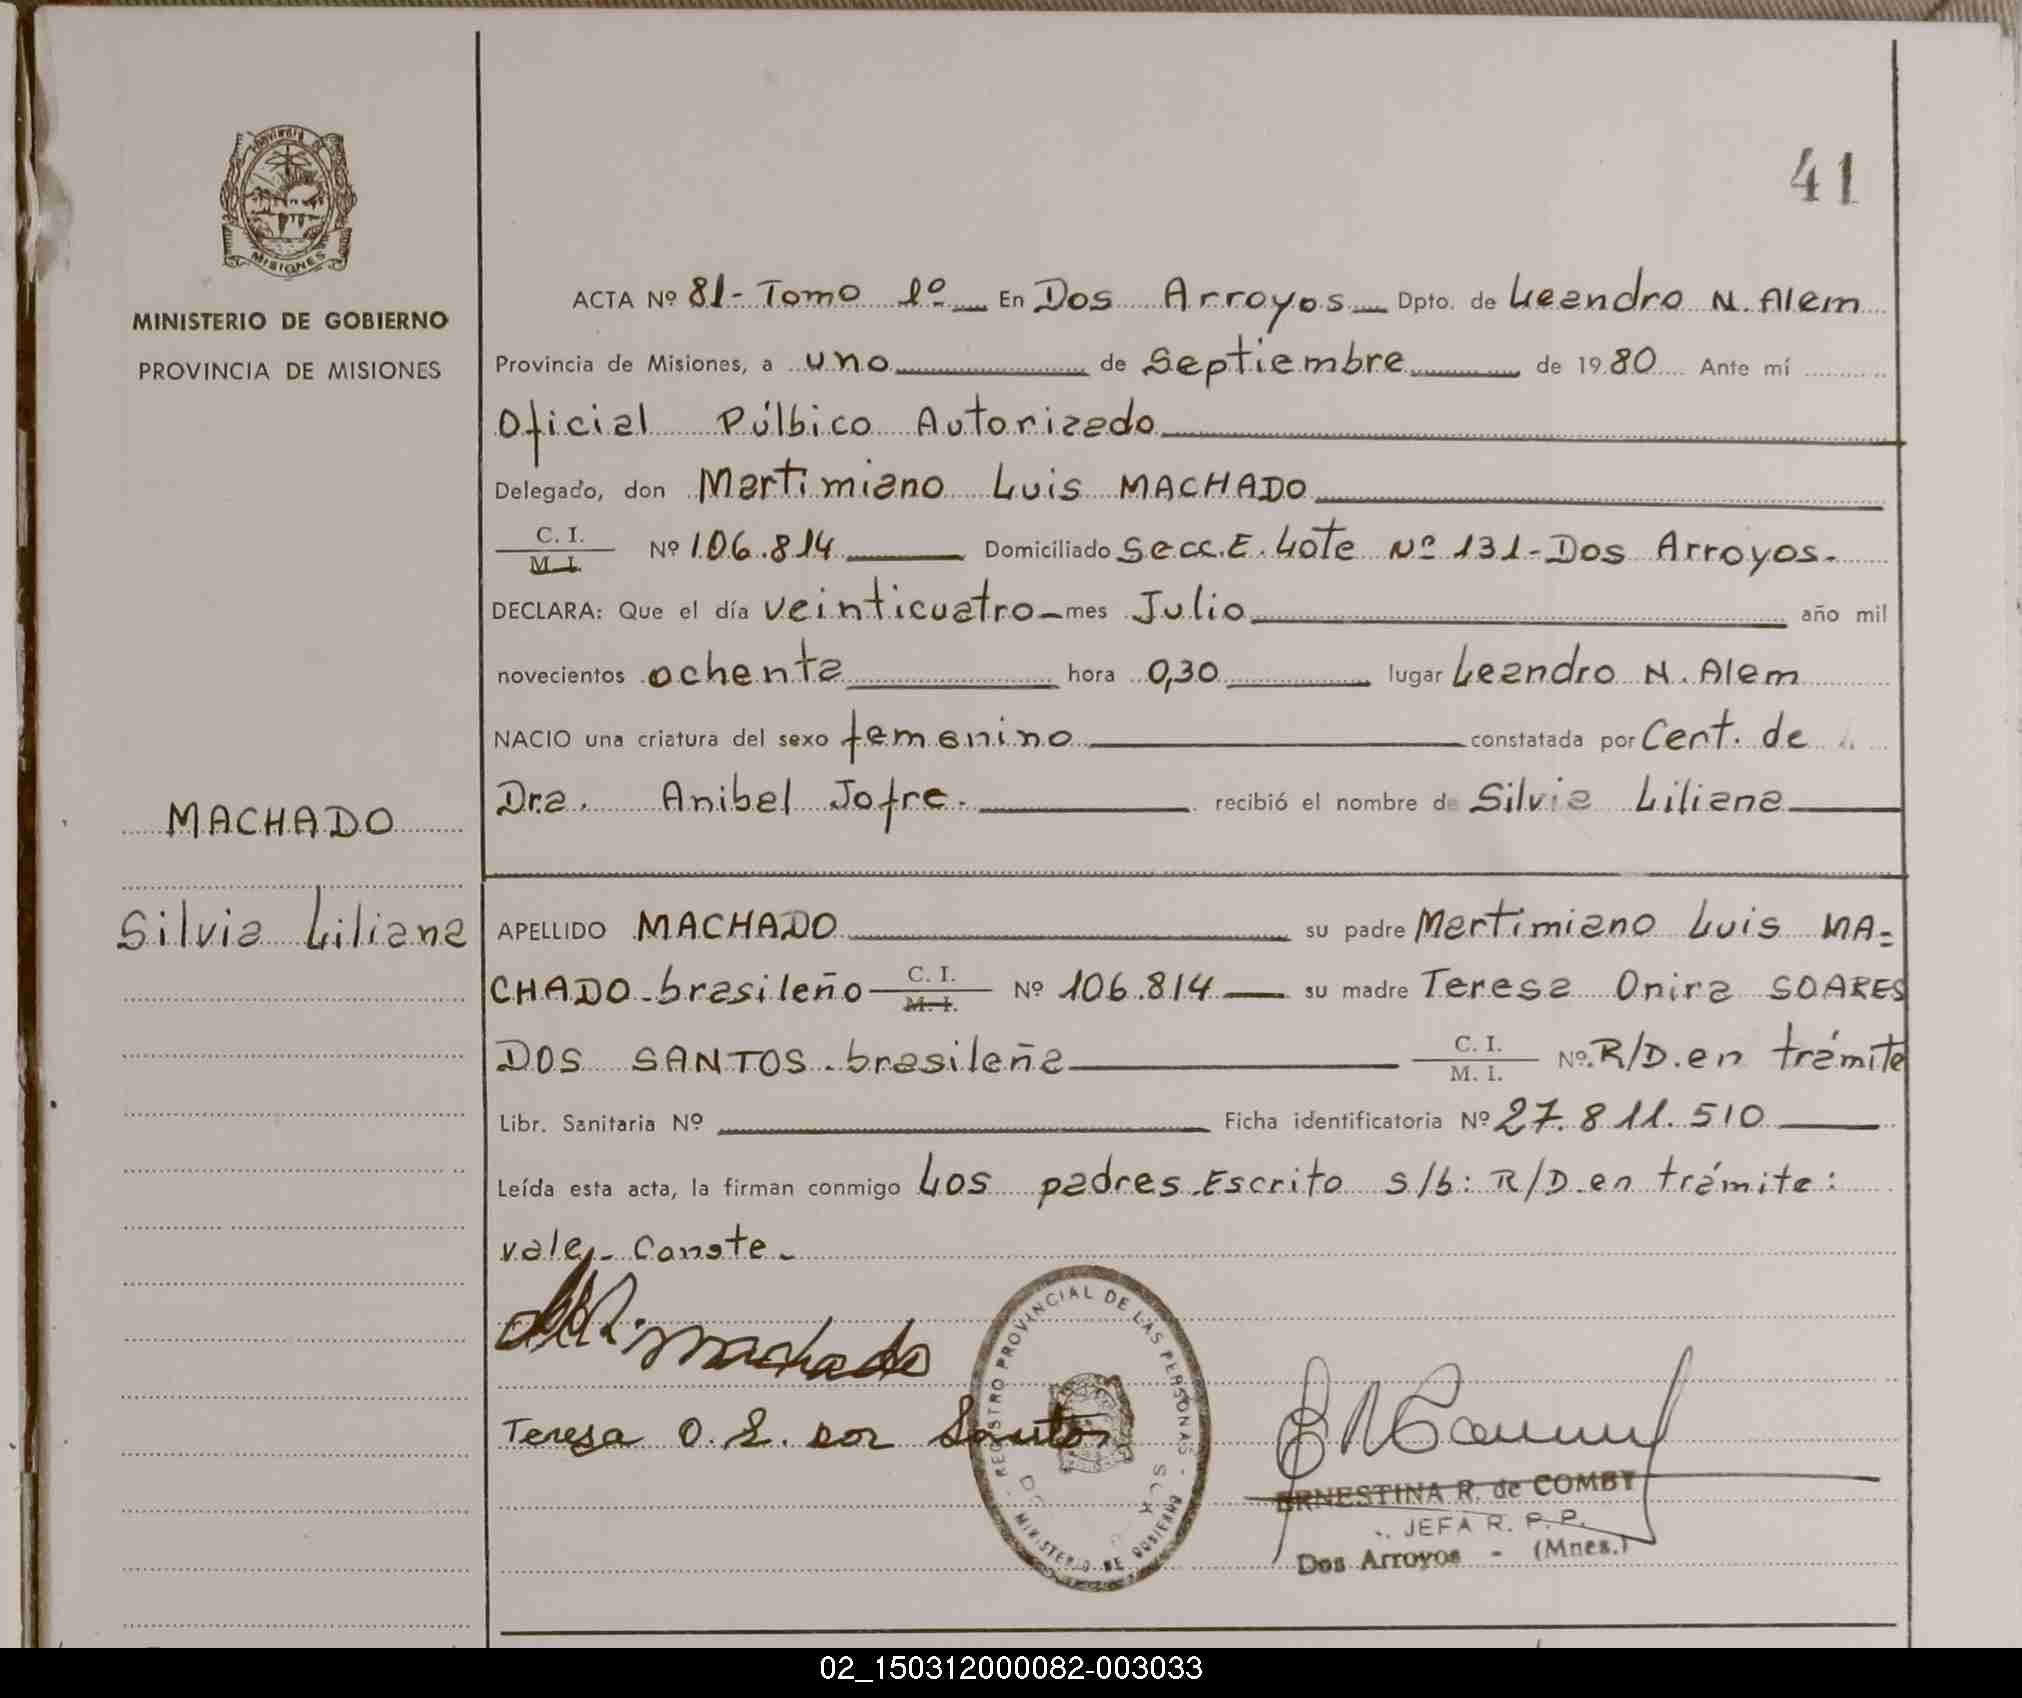 41
MISIONES
MINISTERIO DE GOBIERNO
PROVINCIA DE MISIONES
ACTA Nº 81- Tomo 1º En Dos Arroyos Dpto. de Leandro N. Alem
Provincia de Misiones, a uno de Septiembre de 1980 Ante mí
Oficial Púlbico Autorizado
Delegado, don Martimiano Luis MACHADO
C. I.
M. I.
Nº 106.814 Domiciliado Secc. E. Lote Nº 131- Dos Arroyos.
DECLARA: Que el día veinticuatro mes Julio año mil
novecientos ochenta hora 0,30 lugar Leandro N. Alem
NACIO una criatura del sexo femenino constatada por Cent. de
Dra. Anibel Jofre. recibió el nombre de Silvia Liliana
MACHADO
Silvia Liliana
APELLIDO MACHADO su padre Martimiano Luis MA=
CHADO-brasileño C. I. M. I. Nº 106.814 su madre Teresa Onira SOARES
DOS SANTOS. brasileña C. I. M. I. Nº R/D. en trámite
Libr. Sanitaria Nº Ficha identificatoria Nº 27.811.510
Leída esta acta, la firman conmigo Los padres. Escrito s/b: R/D. en trámite:
vale. Conste.
Machado
Teresa O. S. dos Santos
REGISTRO PROVINCIAL DE LAS PERSONAS -
MINISTERIO DE GOBIERNO
ERNESTINA R. de COMBY
JEFA R. P. P.
Dos Arroyos - (Mnes.)
02_150312000082-003033